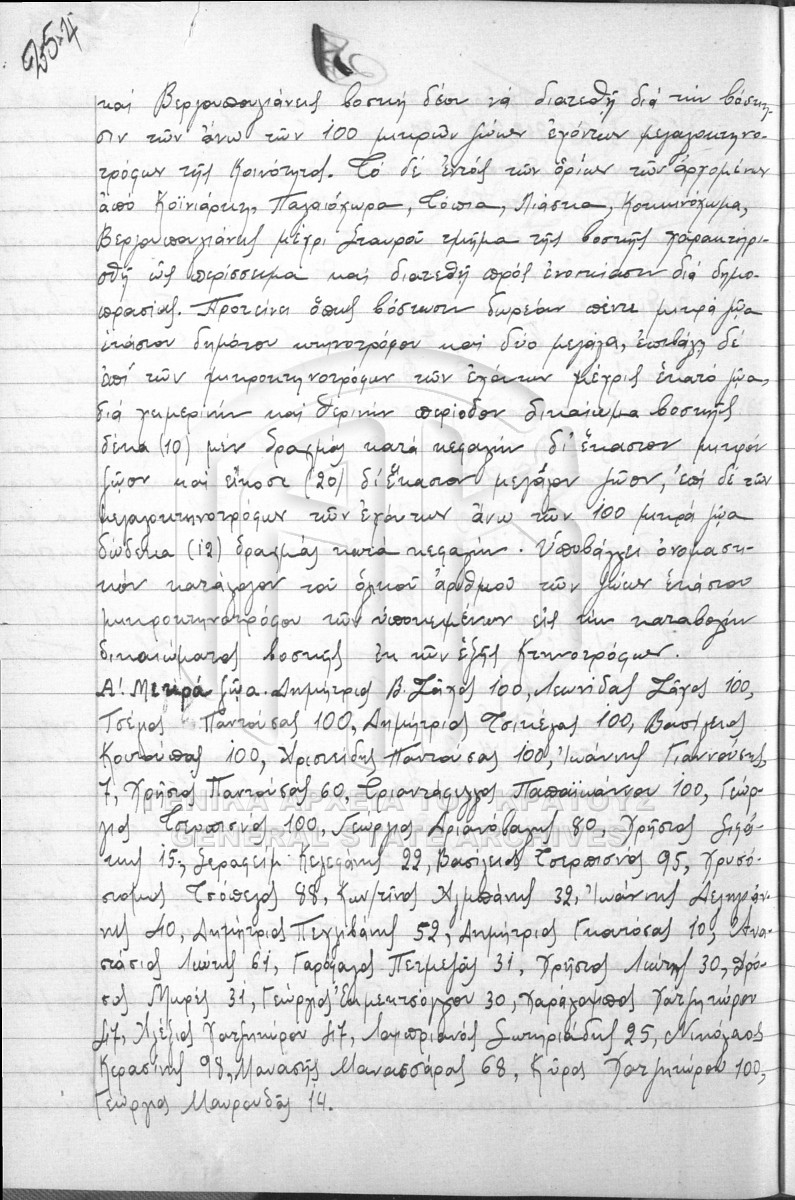 254
καὶ Βεργουπουλιάνεις βοσκή δέον νά διατεθῇ διά τήν βόσκη-
σιν τῶν ἄνω τῶν 100 μικρῶν ζώων ἐχόντων μεγαλοκτηνο-
τρόφων τῆς Κοινότητος. Τό δέ ἐντός τῶν ὁρίων τῶν ἀρχομένων
ἀπό Κοϊνιάρκη, Παλαιόχωρα, Τόπια, Λιάστα, Κοκκινόχωμα,
Βεργουπουλιάνης μέχρι Σταυροῦ τμῆμα τῆς βοσκῆς χαρακτηρι-
σθῇ ὡς περίσσευμα καί διατεθῇ πρός ἐνοικίασιν διά δημο-
πρασίας. Προτείνει ὅπως βόσκωσιν δωρεάν πέντε μικρά ζῶα
ἑκάστου δημότου κτηνοτρόφου καί δύο μεγάλα, ἐπιβάλῃ δέ
ἐπί τῶν μικροκτηνοτρόφων τῶν ἐχόντων μέχρις ἑκατό ζῶα,
διά χειμερινήν καί θερινήν περίοδον δικαίωμα βοσκῆς
δέκα (10) μέν δραχμάς κατά κεφαλήν δι' ἕκαστον μικρόν
ζῶον καί εἴκοσι (20) δι' ἕκαστον μεγάλον ζῶον, ἐπί δέ τῶν
μεγαλοκτηνοτρόφων τῶν ἐχόντων ἄνω τῶν 100 μικρά ζῶα
δώδεκα (12) δραχμάς κατά κεφαλήν. Ὑποβάλλει ὀνομαστι-
κόν κατάλογον τοῦ ὁλικοῦ ἀριθμοῦ τῶν ζώων ἑκάστου
μικροκτηνοτρόφου τῶν ὑποκειμένων εἰς τήν καταβολήν
δικαιώματος βοσκῆς ἐκ τῶν ἑξῆς Κτηνοτρόφων.
Α! Μικρά ζῶα. Δημήτριος Β. Ζάχος 100, Λεωνίδας Ζάχος 100,
Τσέμος Παντούσας 100, Δημήτριος Τσικέλας 100, Βασίλειος
Κουτούπας 100, Ἀριστείδης Παντούσας 100, Ἰωάννης Γιαννούσης
7, Χρῆστος Παντούσας 60, Τριαντάφυλλος Παπαϊωάννου 100, Γεώρ-
γιος Τσιρπισνός 100, Γεώργιος Ἀριανόβαλης 80, Χρῆστος
15, Σεραφείμ Κελεφάκης 22, Βασίλειος Τσιρπισνός 95, Χρυσό-
στομος Τσόπελας 88, Κων/τῖνος Ἀλμπάνης 32, Ἰωάννης Δεληγιάν-
νης 40, Δημήτριος Πεχλιβάνης 52, Δημήτριος Γκατόσας 10, Ἀνα-
στάσιος Λιώτης 61, Γαρόφαλος Πετμεζᾶς 31, Χρῆστος Λιώτης 30,
Μιρές 31, Γεώργιος Ἐκμεκτσόγλου 30, Χαράλαμπος Χατζηκύρου
47, Ἀλέξιος Χατζηκύρου 47, Λαμπριανός Σωτηριάδης 25, Νικόλαος
Κερασίνης 98, Μανασῆς Μανασσάρας 68, Κῦρος Χατζηκύρου 100,
Γεώργιος Μαυρουδᾶς 14.
ΓΕΝΙΚΑ ΑΡΧΕΙΑ ΤΟΥ ΚΡΑΤΟΥΣ
GENERAL STATE ARCHIVES